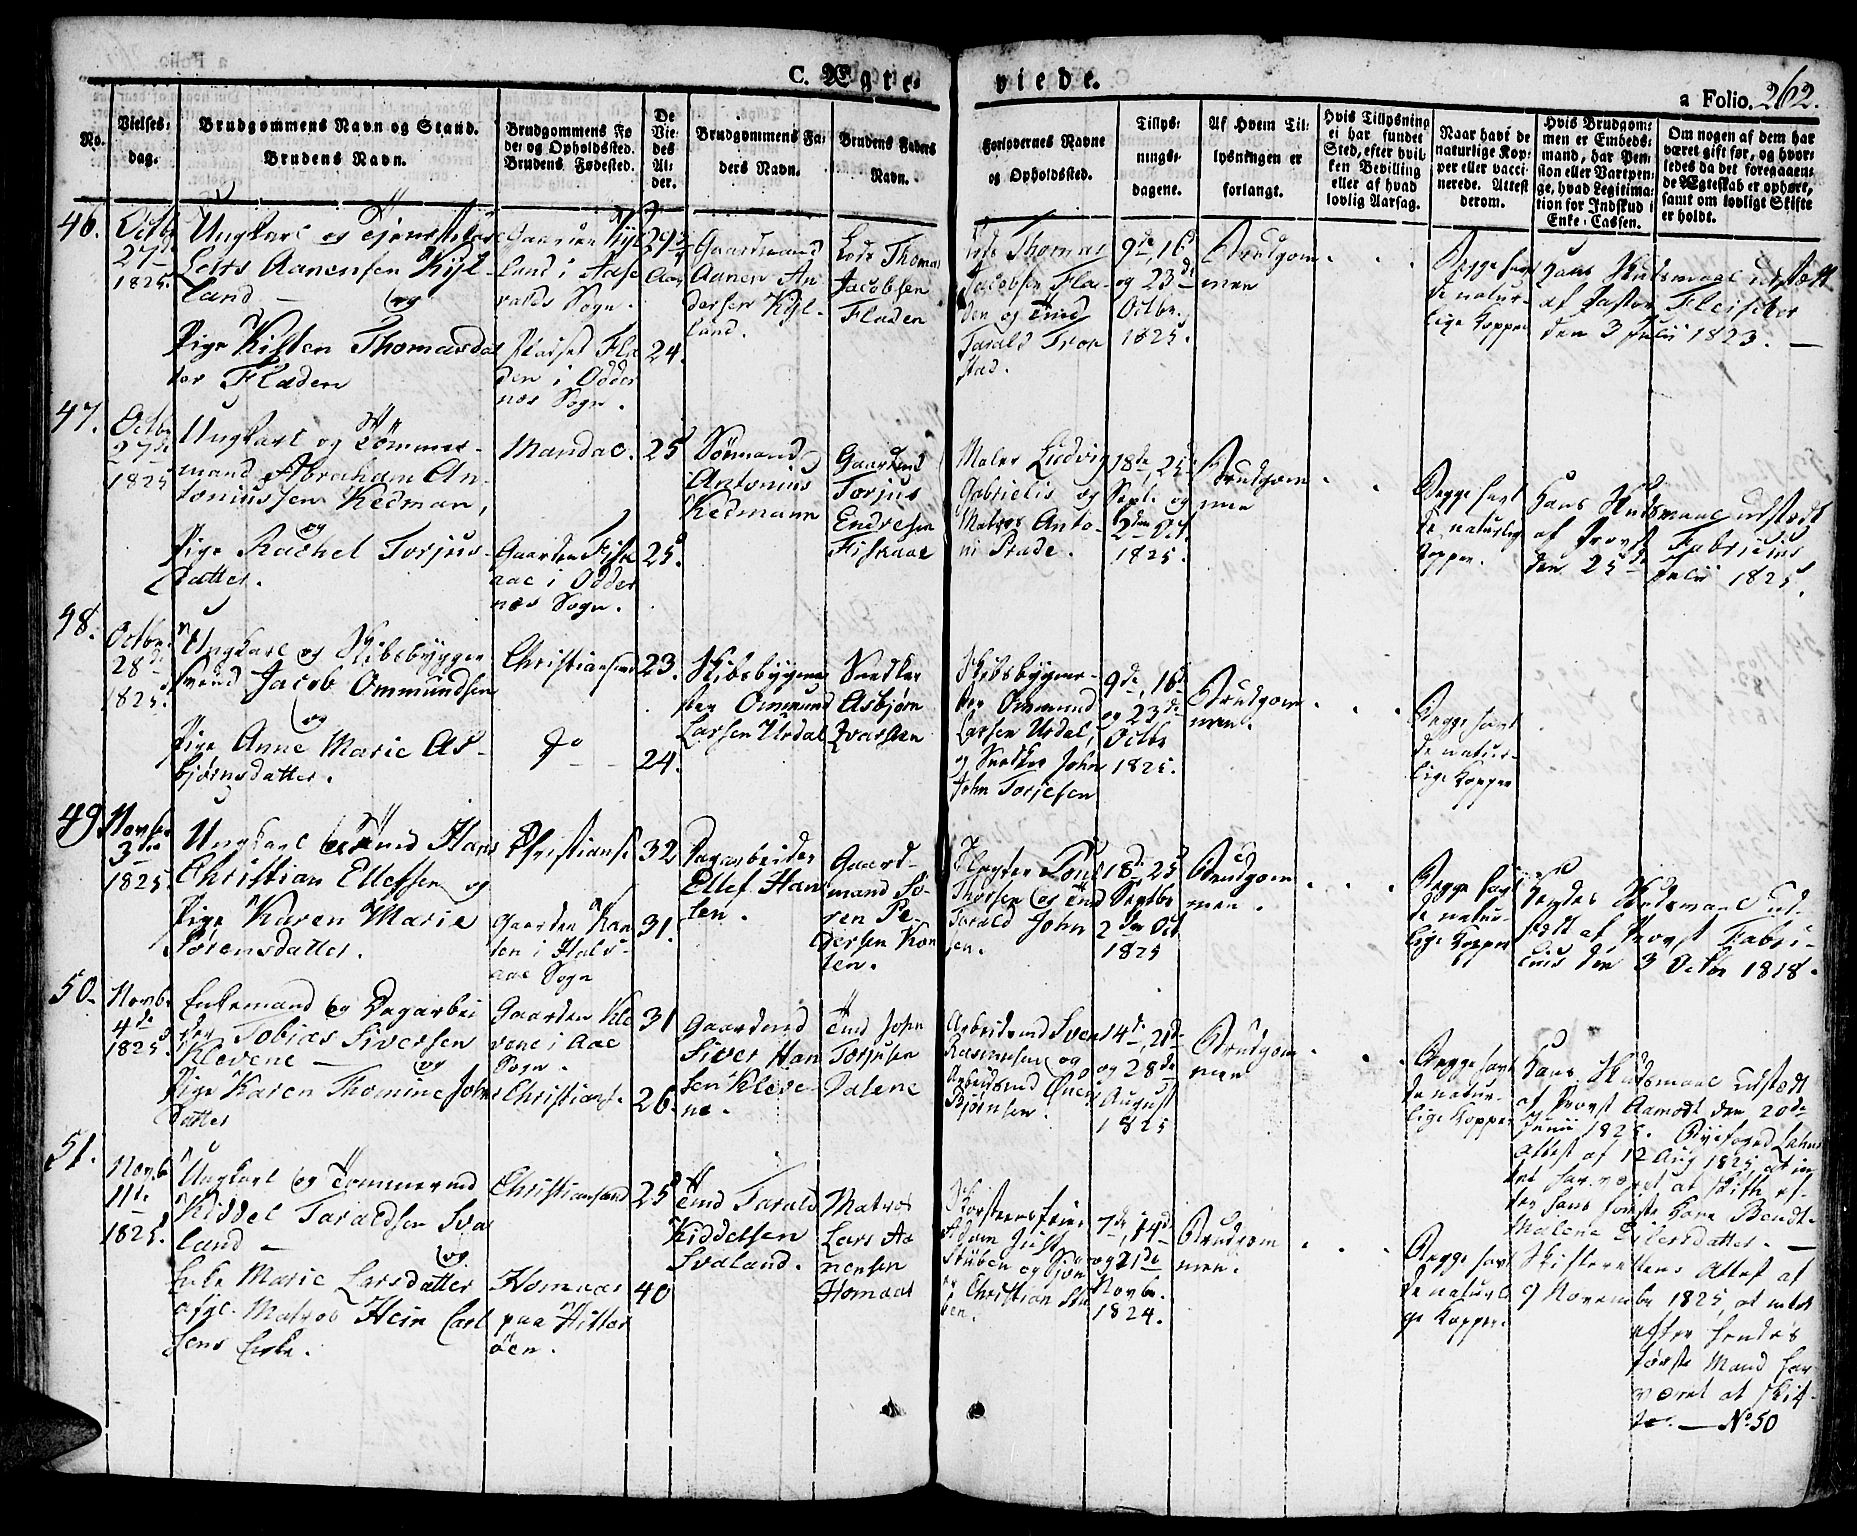 C. Ægte-
viede.
a Folio. 262.
No.
Vielses-
dag.
Brudgommens Navn og Stand.
Brudens Navn.
Brudgommens Fø
de- og Opholdssted.
Brudens Fødested.
De
Vie-
des
Al-
der.
Brudgommens Fa-
ders Navn.
Brudens Faders
Navn.
Forlovernes Navne
og Opholdssted.
Tillys-
nings-
dagene.
Af Hvem Til-
lysningen er
forlangt.
Hvis Tillysning
ei har fundet
Sted, efter hvil-
ken Bevilling
eller af hvad
lovlig Aarsag.
Naar havt de
naturlige Kop-
per eller vacci-
nerede. Attest
derom.
Hvis Brudgom-
men er Embeds-
mand, har Pen-
sion eller Vartpen-
ge, hvad Legitima-
tion for Indskud i
Enke-Cassen.
Om nogen af dem har
været gift før, og hvor-
ledes da det foregaaen-
de Ægteskab er ophørt,
samt om lovligt Skifte
er holdt.
46.
Octbr
27de
1825.
Ungkarl og Tjenestekarl
Aanensen Kyl-
land — og
Pige Kisten Thomasdat
ter Fladen
Gaarden Kyl
land i
Sogn.
Pladset Fla
den i Odder
nes Sogn.
29
Aar
24.
Gaardmand
Aanen An
dersen Kyl-
land.
Lods Thomas
Jacobsen
Fladen
Lods Thomas
Jacobsen Fla-
den og Tmd
Tarald Tron
stad.
9de, 16de
og 23de
Octbr.
1825.
Brudgom
men
Begge havt
de natur-
lige Kopper
Hans Skudsmaal udstædt
af Pastor Fleischer
den 3 Julii 1823. —
47.
Octbr
27de
1825
Ungkarl og Tømmer-
mand Abraham An-
toniussen Kedman,
og
Pige Rachel Torjus-
datter.
Mandal.
Gaarden Fisk
aae i Odder
nes Sogn.
25
25.
Sømand
Antonius
Kedmann
Gaardmd
Torjus
Endresen
Fiskaae
Maler Ludvig
Gabrielis og
Matros Anto-
ni Prade.
18de, 25de
Septb. og
2den Oct
1825.
Brudgom
men
Begge havt
de naturlig
Kopper.
Hans Skudsmaal udstædt
af Provst Fabricius
den 25de Julii 1825.
48.
Octbr.
28de
1825.
Ungkarl og Skibsbygger
svend Jacob Ommundsen
og
Pige Anne Marie As-
bjørnsdatter.
Christiansand
do
23.
24.
Skibsbygme
ster Ommund
Larsen Urdal
Snedker
Asbjørn
Ivarsen
Skibsbygme-
ster Ommund
Larsen Urdal,
og Snedker John
John Torjesen
9de, 16de
og 23de
Octbr
1825.
Brudgom
men.
Begge havt
de natur-
lige Kopper
49.
Novbr
3die
1825.
Ungkarl og Tmd Hans
Christian Ellefsen og
Pige Karen Marie
Sørensdatter.
Christians.
Gaarden Kon
sen i Hals-
aae Sogn
32
31.
Dagarbeider
Ellef Han
sen.
Gaard-
mand Sø-
ren Pe-
dersen Kon
sen.
Slagter Tønes
Thorsen og Tmd
Tarald John
sen.
18de, 25
Septbr
2den Oct
1825
Brudgom
men.
Begge havt
de natur-
lige Kopper
Hendes Skudsmaal ud-
stædt af Provst Fabri-
cius den 3 Octbr 1818.
50.
Novbr.
4de
1825.
Enkemand og Dagarbei
der Tobias Siversen
Klevene — og
Pige Karen Thomine Johns
datter
Gaarden Kle
vene i Aae
Sogn.
Christians.
31
26.
Gaardmd
Siver Han
sen Kleve-
ne.
Tmd John
Torjusen
Dalene
Arbeidsmd Sven
Rasmusen og
Arbeidsmd
Bjørnsen.
14de, 21de
og 28de
August
1825
Brudgom
men
Begge havt
de natur-
lige Kopper
Hans Skudsmaal udstædt
af Provst Aamodt den 20de
Junii 1825. Byefoged
Attest af 12 Aug 1825, at in
tet har været at skifte ef-
ter hans første Kone Bendt-
Malene Eilertsdatter. —
51.
Novb.
11te
1825.
Ungkarl og Tømmermd
Kiddel Taraldsen Sva
land — og
Enke Marie Larsdatter
afg. Matros Hein Carl
sens Enke.
Christiansand
Homaas
paa Hitter
öen.
25
40
Tmd Tarald
Kiddelsen
Svaland.
Matros
Lars Aa
nensen
Homaas
Skorsteensfeier
Adam Just
Stüben og
Christian Stü
ben.
7de, 14de
og 21de
Novbr.
1824.
Brudgom
men.
Begge havt
de naturli
ge Kopper.
Skifterettens Attest af
9 Novembr 1825, at intet
efter hendes
første Mand har
været at skif-
te. — No 50